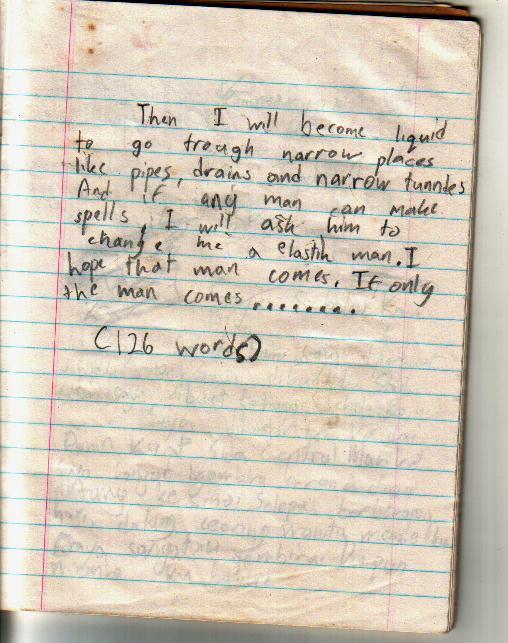 Then I will become liquid
to go trough narrow places
like pipes, drains and narrow tunnles
And if any man can make
spells, I will ask him to
change me a elastik man. I
hope that man comes. If only
the man comes ........
(126 words)